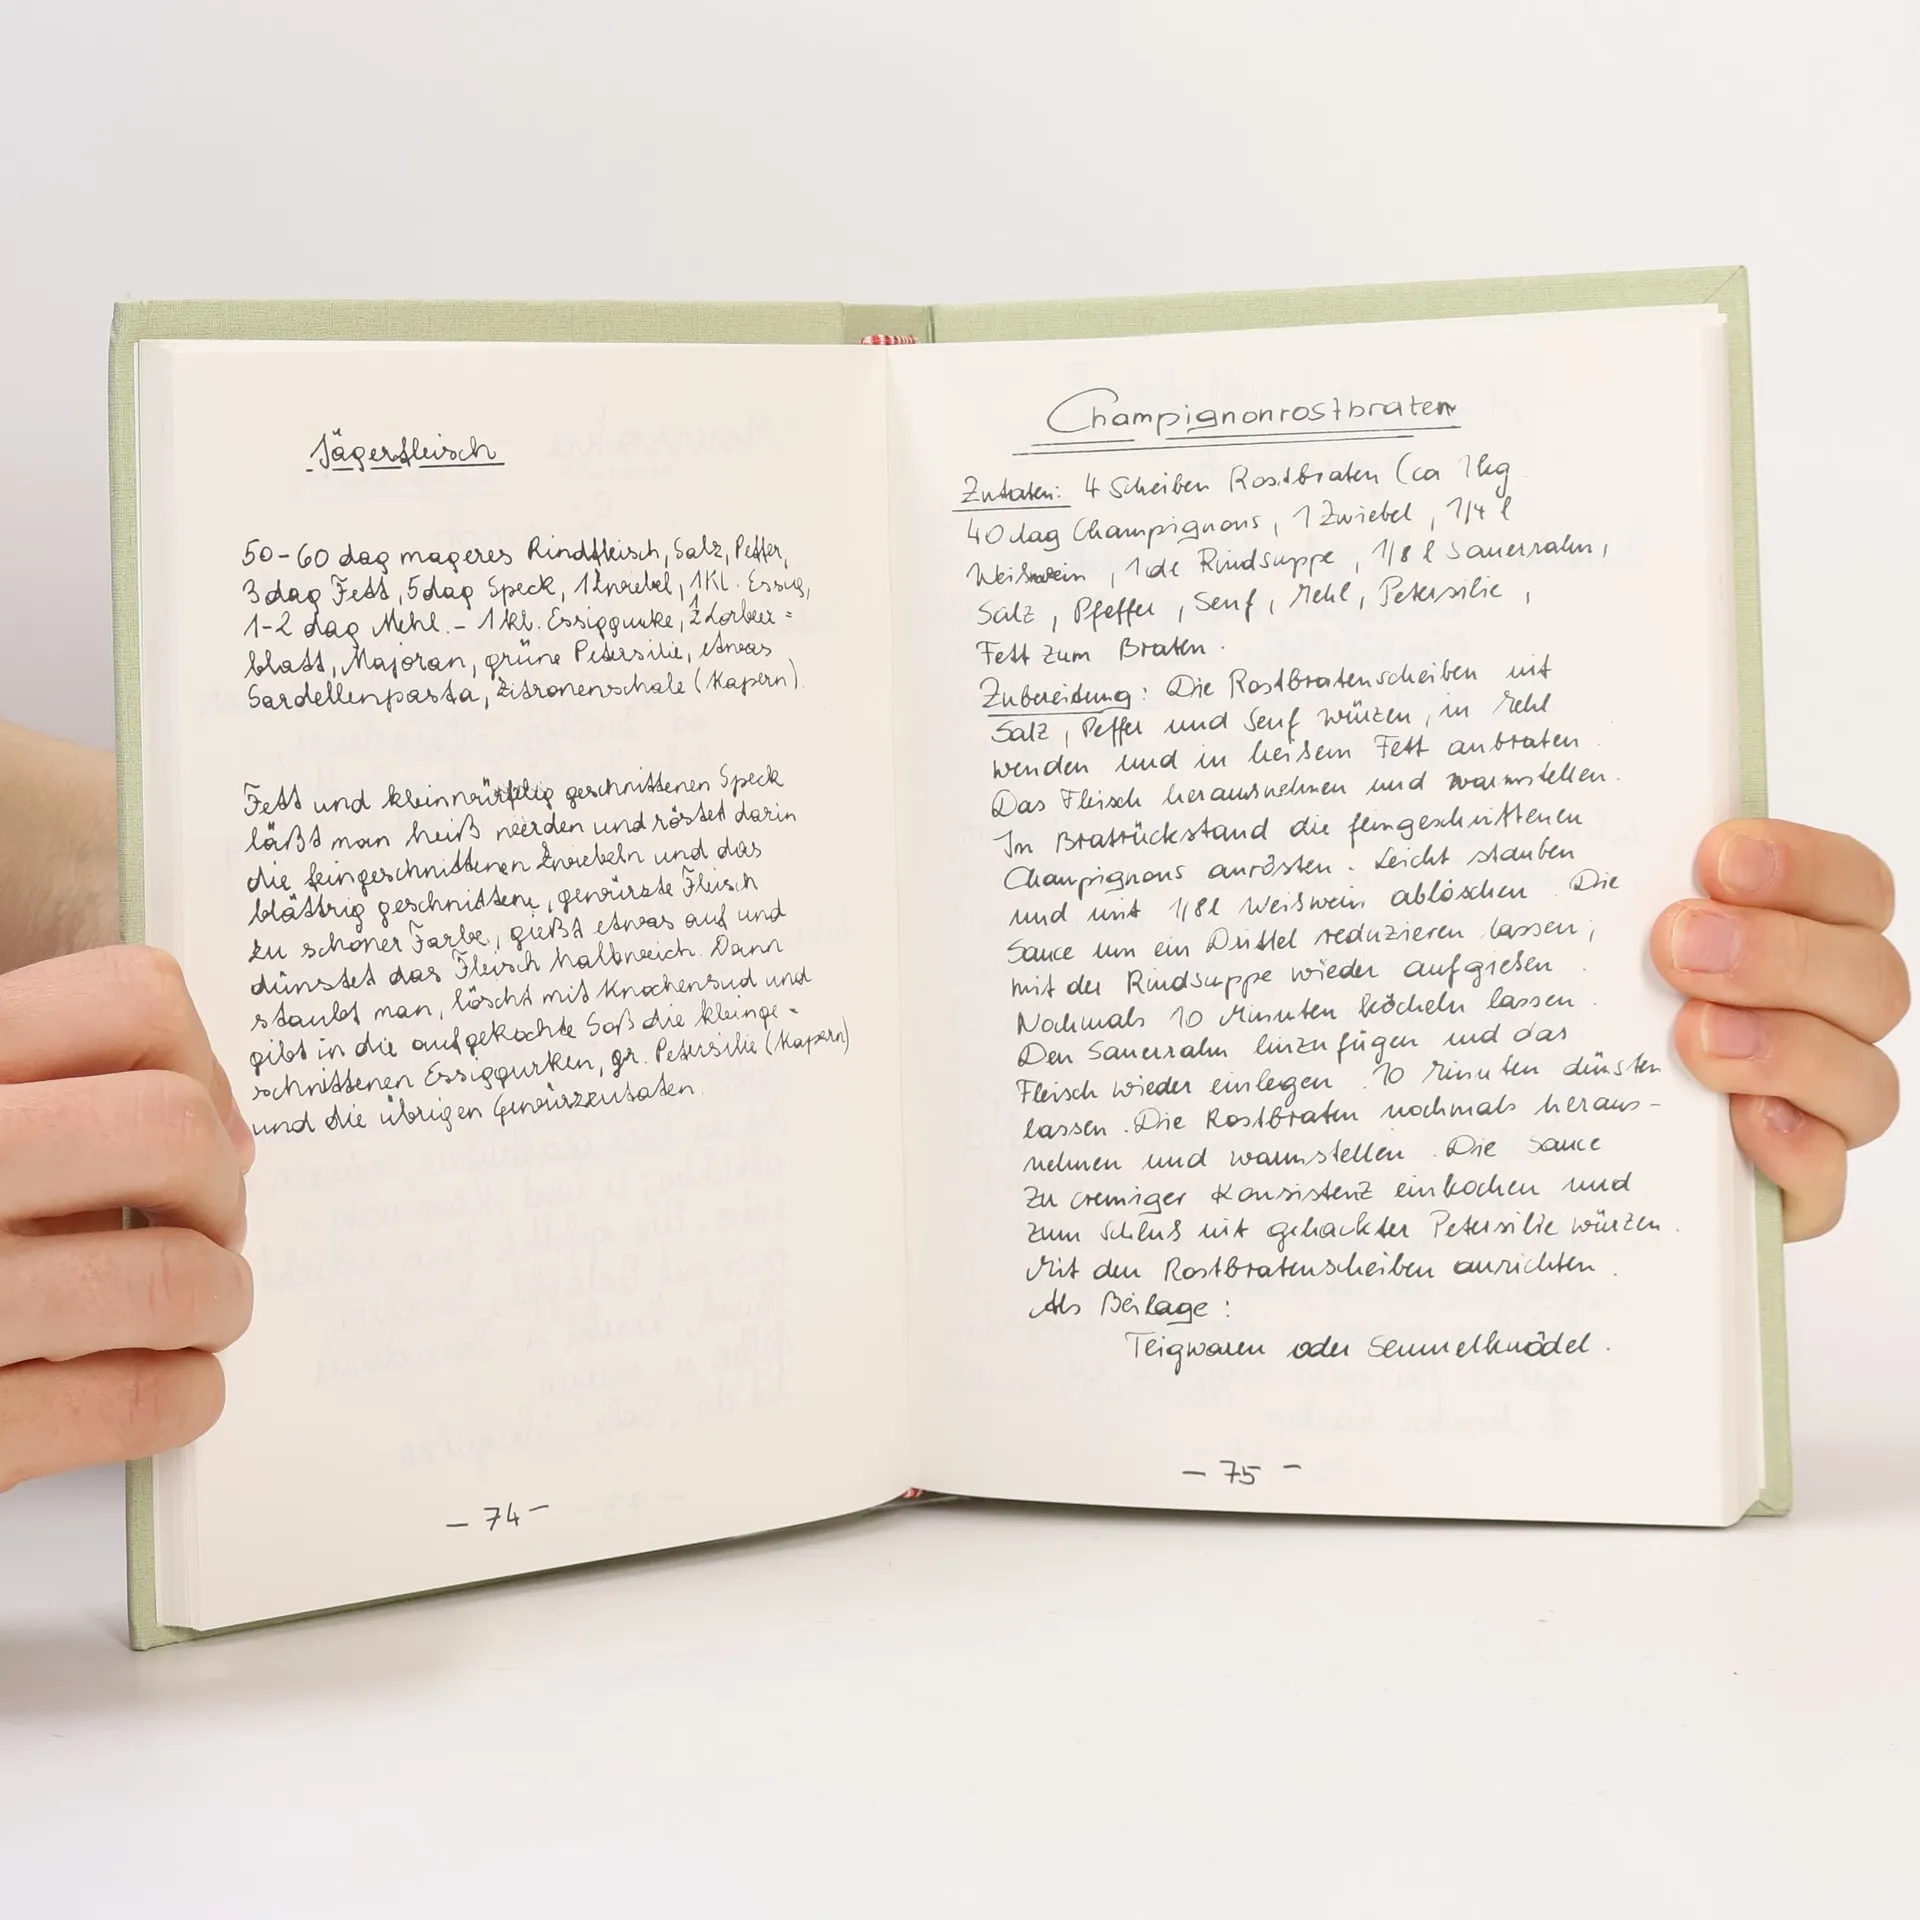 Jägerfleisch
50-60 dag mageres Rindfleisch, Salz, Peffer,
3 dag Fett, 5 dag Speck, 1 Zwiebel, 1 Kl. Essig,
1-2 dag Mehl. - 1 kl. Essiggurke, 1/2 Lorbeer=
blatt, Majoran, grüne Petersilie, etwas
Sardellenpasta, Zitronenschale (Kapern).
Fett und kleinwürflig geschnittenen Speck
läßt man heiß werden und röstet darin
die feingeschnittenen Zwiebeln und das
blättrig geschnittene, gewürzte Fleisch
zu schöner Farbe, gießt etwas auf und
dünstet das Fleisch halbweich. Dann
staubt man, löscht mit Knochensud und
gibt in die aufgekochte Soß die kleinge=
schnittenen Essiggurken, gr. Petersilie (Kapern)
und die übrigen Gewürzzutaten.
- 74 -
Champignonrostbraten
Zutaten: 4 Scheiben Rostbraten (ca 1kg
40 dag Champignons, 1 Zwiebel, 1/4 l
Weißwein, 1 de Rindsuppe, 1/8 l Sauerrahm,
Salz, Pfeffer, Senf, Mehl, Petersilie,
Fett zum Braten.
Zubereitung: Die Rostbratenscheiben mit
Salz, Peffer und Senf würzen, in Mehl
wenden und in heißem Fett anbraten.
Das Fleisch herausnehmen und warmstellen.
In Bratrückstand die feingeschnittenen
Champignons anrösten. Leicht stauben
und mit 1/8 l Weißwein ablöschen. Die
Sauce um ein Drittel reduzieren lassen,
mit der Rindsuppe wieder aufgießen.
Nochmals 10 Minuten köcheln lassen.
Den Sauerrahm hinzufügen und das
Fleisch wieder einlegen. 10 Minuten dünsten
lassen. Die Rostbraten nochmals heraus-
nehmen und warmstellen. Die Sauce
zu cremiger Konsistenz einkochen und
zum Schluß mit gehackter Petersilie würzen.
Mit den Rostbratenscheiben anrichten.
Als Beilage:
Teigwaren oder Semmelknödel.
- 75 -